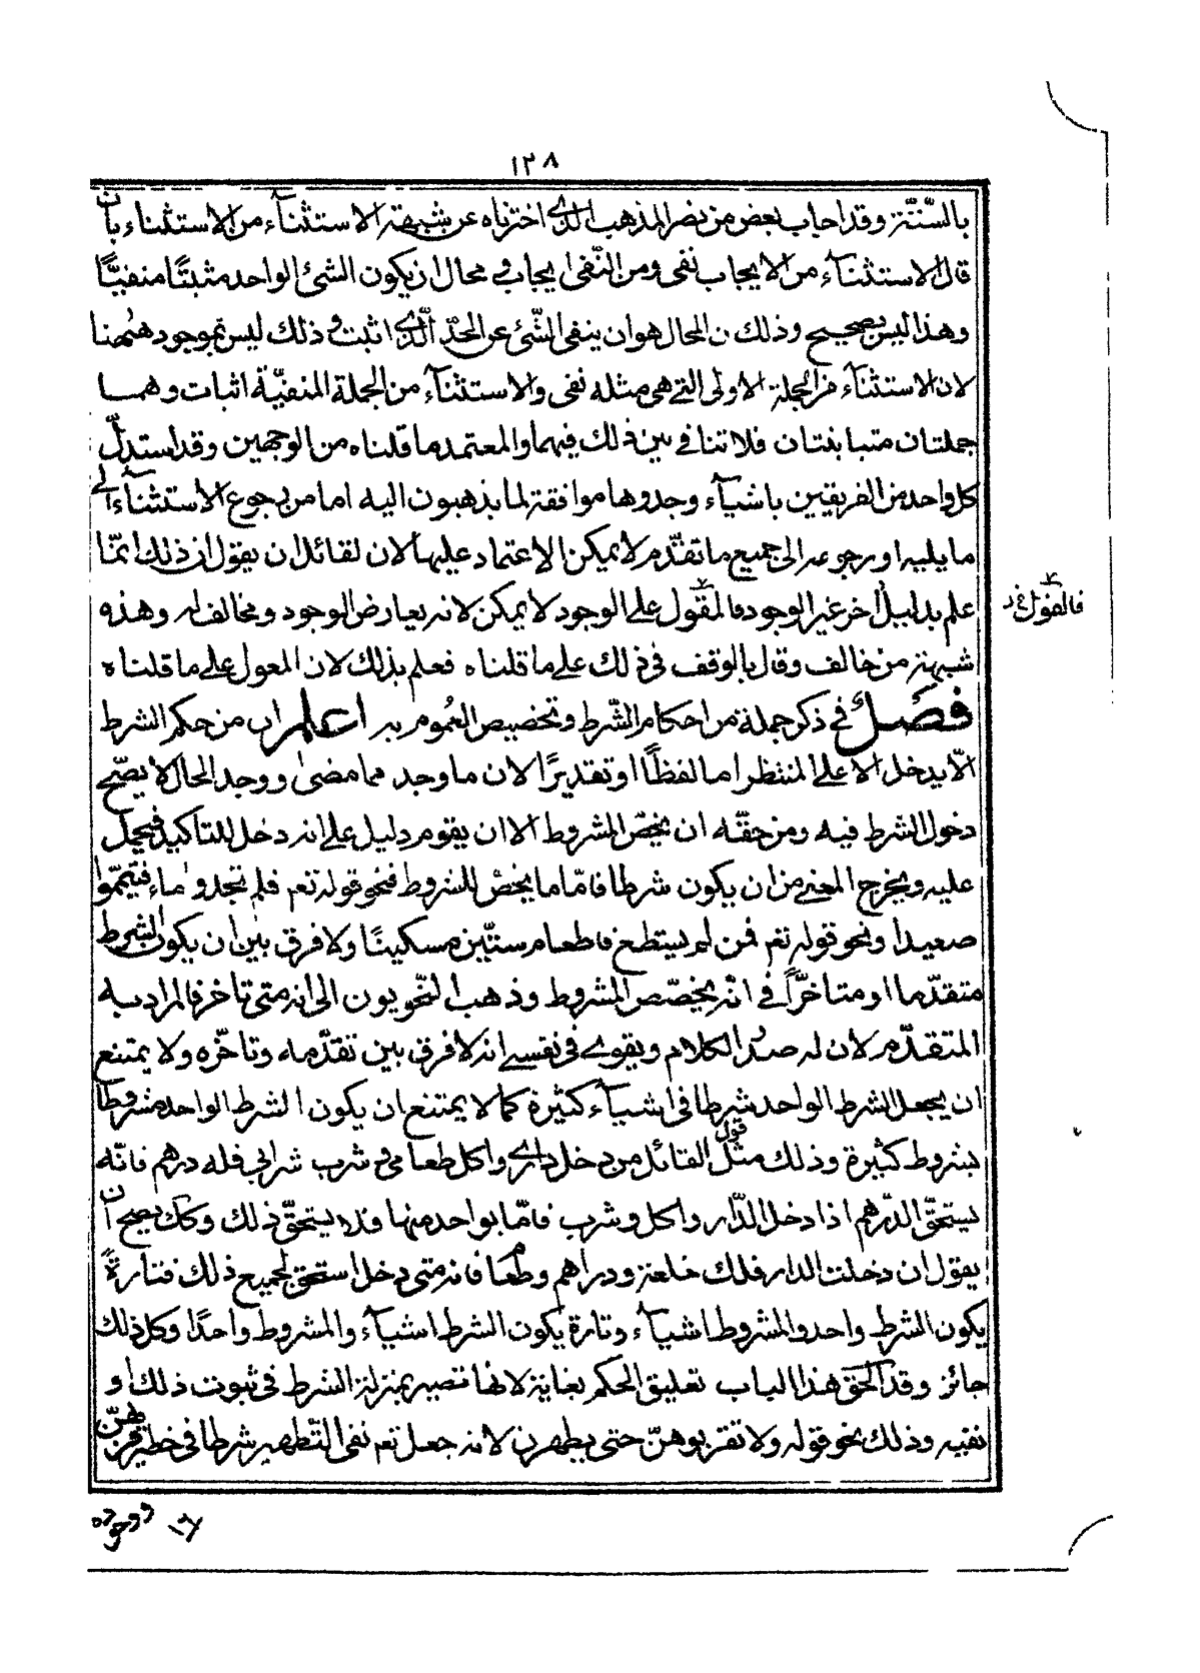 ١٢٨
بالسّنّة وقد اجاب بعض من نصر المذهب الذى اخترناه عن شبهة الاستثناء من الاستثناء بان
قال الاستثناء من الايجاب نفى ومن النّفى ايجاب فى محال ان يكون الشئ الواحد مثبتًا منفيًّا
وهذا ليس بصحيح وذلك ن المحال هو ان ينفى الشّئ عن الحدّ الّذى اثبت و ذلك ليس بموجود ههنا
لان الاستثناء من الجملة الاولى التى هى مثله نفى والاستثناء من الجملة المنفيّة اثبات وهما
جملتان متباينتان فلا تنافى بين ذلك فيهما والمعتمد ما قلناه من الوجهين وقد استدلّ
كل واحد من الفريقين باشياء وجدوها موافقة لما يذهبون اليه اما من رجوع الاستثناء الى
ما يليه او رجوعه الى جميع ما تقدّم لا يمكن الاعتماد عليها لان لقائل ان يقول ان ذلك انّما
علم بدليل اخر غير الوجود فالمقول على الوجود لا يمكن لانه يعارض الوجود و مخالف له وهذه
فالقول خ د
شبهة من خالف وقال بالوقف فى ذلك على ما قلناه فعلم بذلك لان المعول على ما قلناه
فصل فى ذكر جملة من احكام الشّرط وتخصيص العُموم به اعلم ان من حكم الشرط
الّا يدخل الا على المنتظر اما لفظًا او تقديرًا لان ما وجد مما مضى و وجد الحال لا يصّح
دخول الشرط فيه ومن حقّه ان يخصّ المشروط الا ان يقوم دليل على انه دخل للتاكيد فيحمل
عليه ويخرج المعنى من ان يكون شرطا فامّا ما يخصّ المشروط فنحو قوله تعم فلم تجدوا ماء فتيمّموا
صعيدا ونحو قوله تعم فمن لم يستطع فاطعام ستّين مسكينًا ولا فرق بين ان يكون الشرط
متقدّما او متاخرًا فى انّه يخصّص المشروط وذهب النّحويون الى انه متى تاخر فالمراد به
المتقدّم لان له صدر الكلام ويقوى فى نفسى انه لا فرق بين تقدّمه وتاخّره ولا يمتنع
ان يجعل الشرط الواحد شرطا فى اشياء كثيرة كما لا يمتنع ان يكون الشرط الواحد مشروطا
بشروط كثيرة وذلك مثل قول القائل من دخل دارى واكل طعامى و شرب شرابى فله درهم فانّه
يستحقّ الدّرهم اذا دخل الدّار واكل وشرب فامّا بواحد منها فلا يستحقّ ذلك وكك يصح ان
يقول ان دخلت الدار فلك خلعة ودراهم وطعام فانه متى دخل استحق لجميع ذلك فتارةً
يكون الشرط واحدو المشروط اشياء وتارة يكون الشرط اشياء والمشروط واحدًا وكل ذلك
جائز وقد الحق هذا الباب تعليق الحكم بغاية لانها تصير بمنزلة الشرط فى ثبوت ذلك او
نفيه وذلك نحو قوله ولا تقربوهنّ حتى يطهرن لانه جعل تعم نفى التّطهير شرطا فى خطر قربهنّ